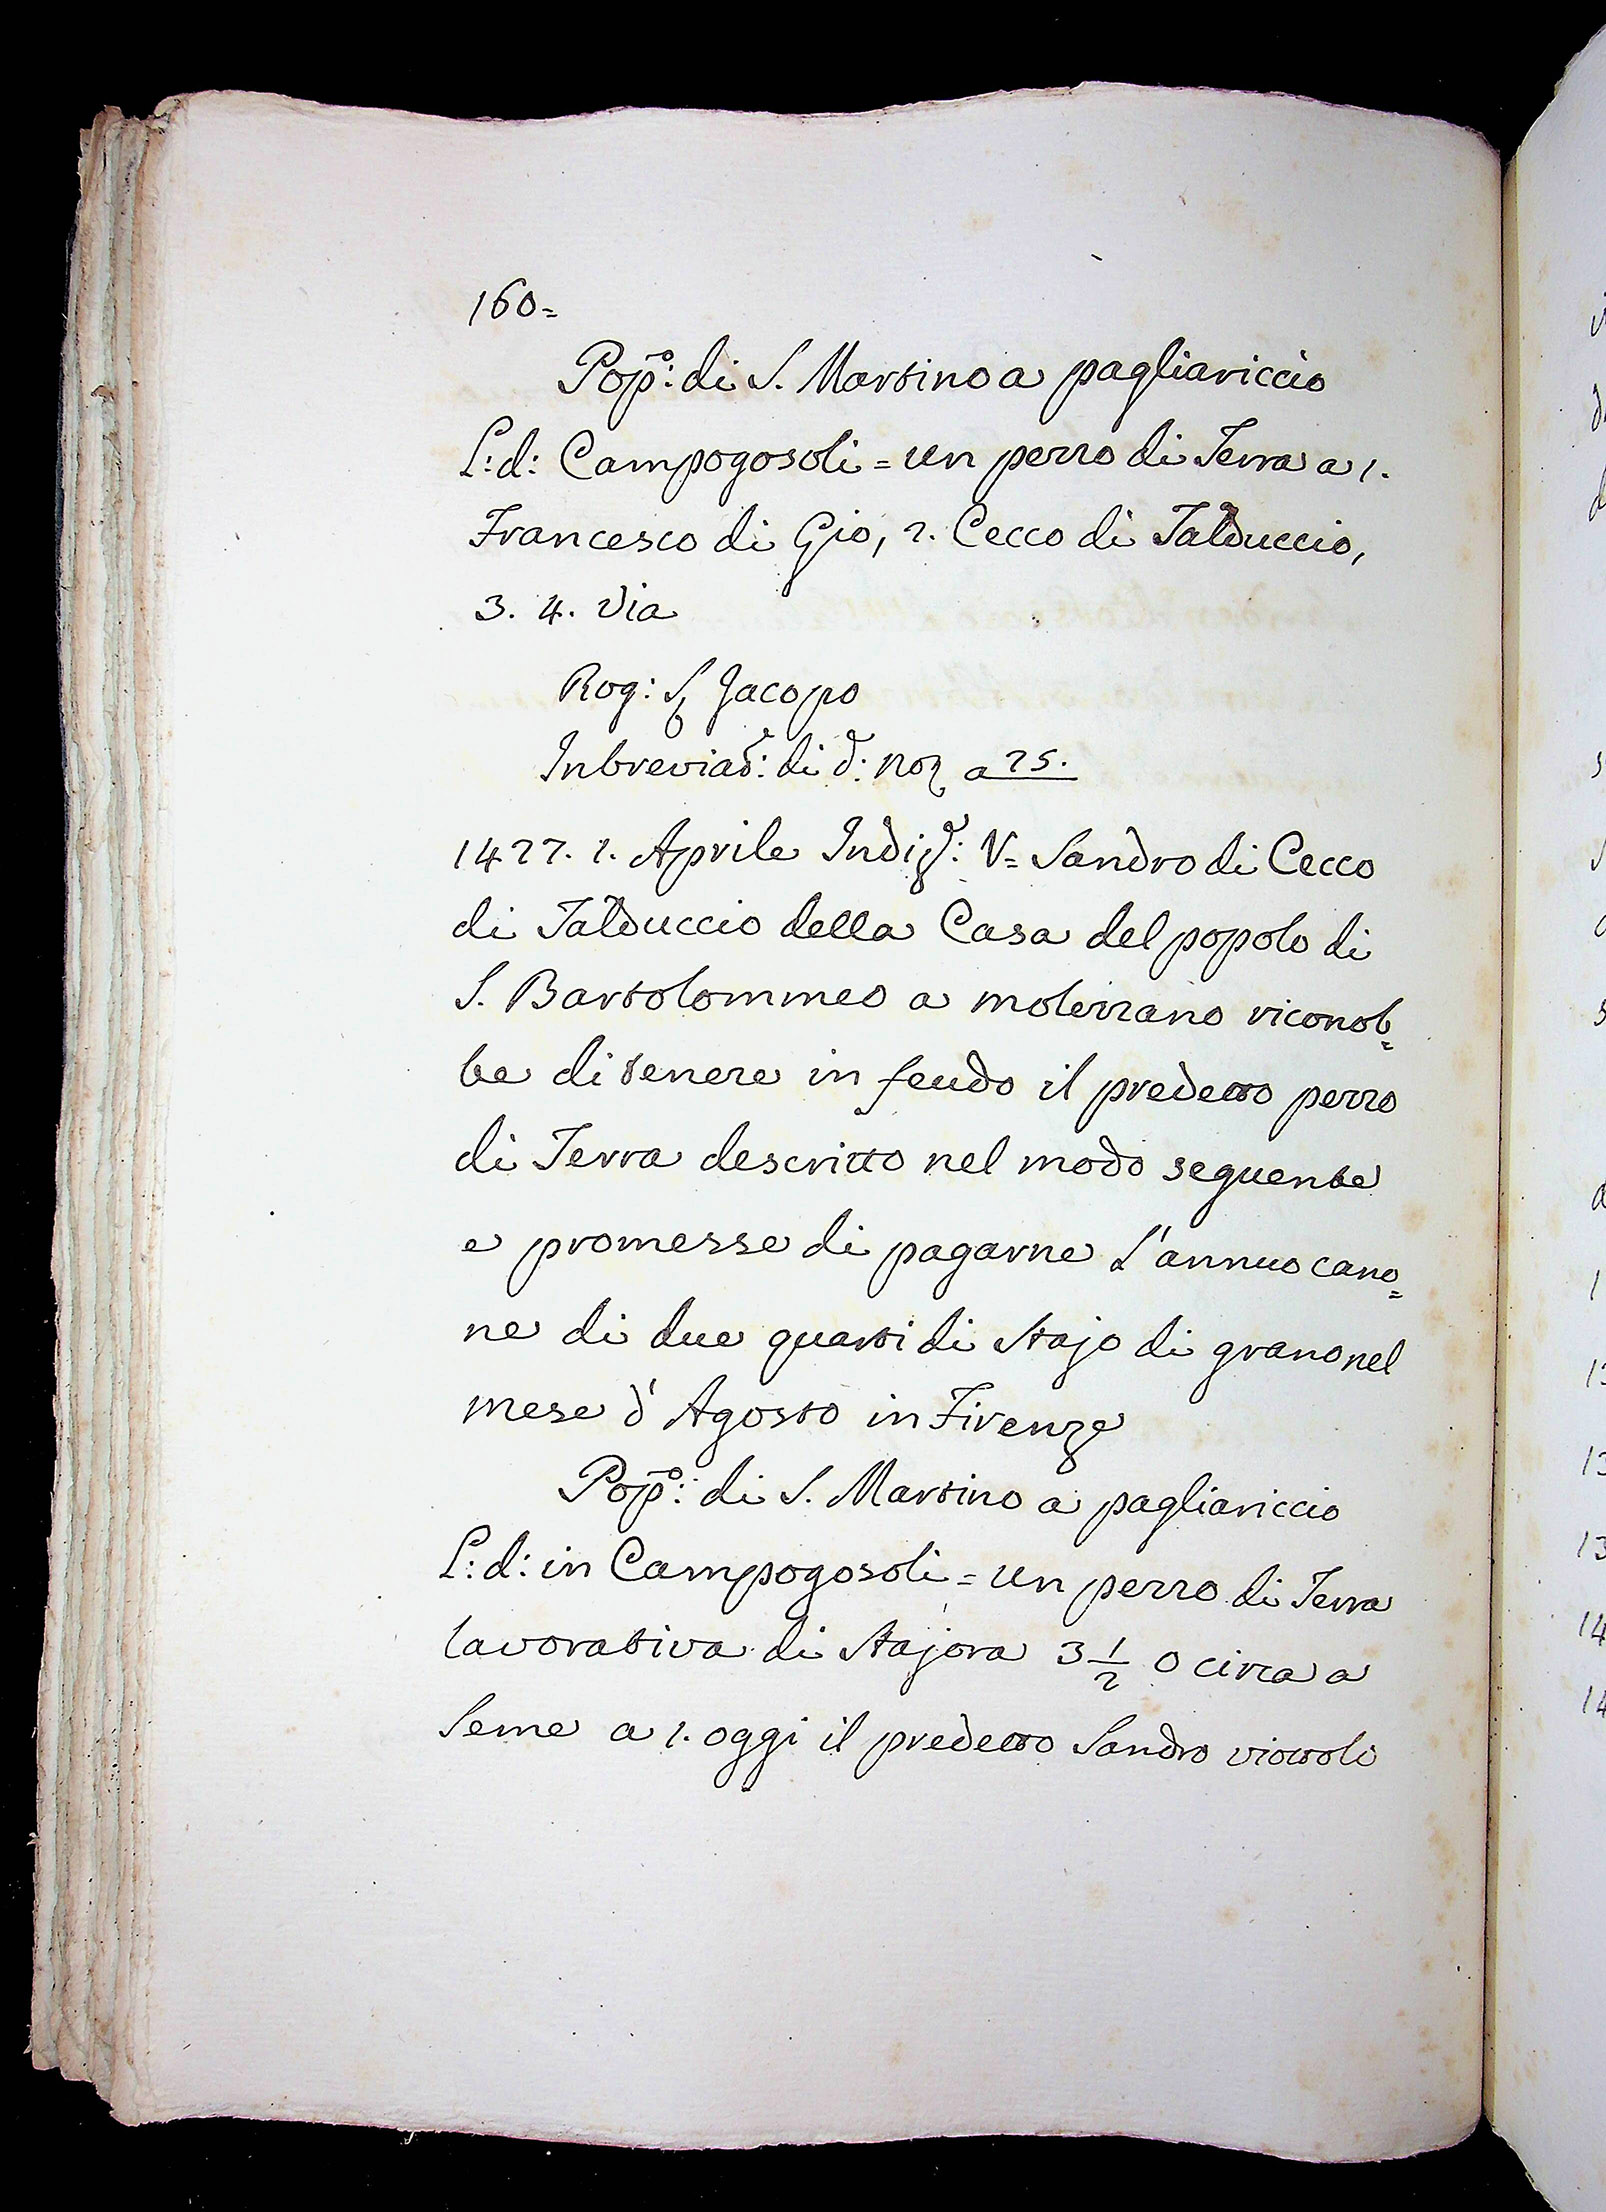 160=
Pop:º di S. Martino a pagliariccio
L: d: Campogosoli = un pezzo di Terra a 1.
Francesco di Gio, 2. Cecco di Talduccio,
3. 4. Via
Rog: S. Jacopo
Inbreviat: di d: Not a 25.
1427. 1. Aprile Indiz: V= Sandro di Cecco
di Talduccio della Casa del popolo di
S. Bartolommeo a molezzano riconob=
be di tenere in feudo il predetto pezzo
di Terra descritto nel modo seguente
e promesse di pagarne l'annuo cano=
ne di due quarti di Stajo di grano nel
mese d'Agosto in Firenze
Pop:º di S. Martino a pagliariccio
L: d: in Campogosoli = un pezzo di Terra
lavorativa di Stajora 3 1/2 o circa a
Seme a 1. oggi il predetto Sandro viottolo